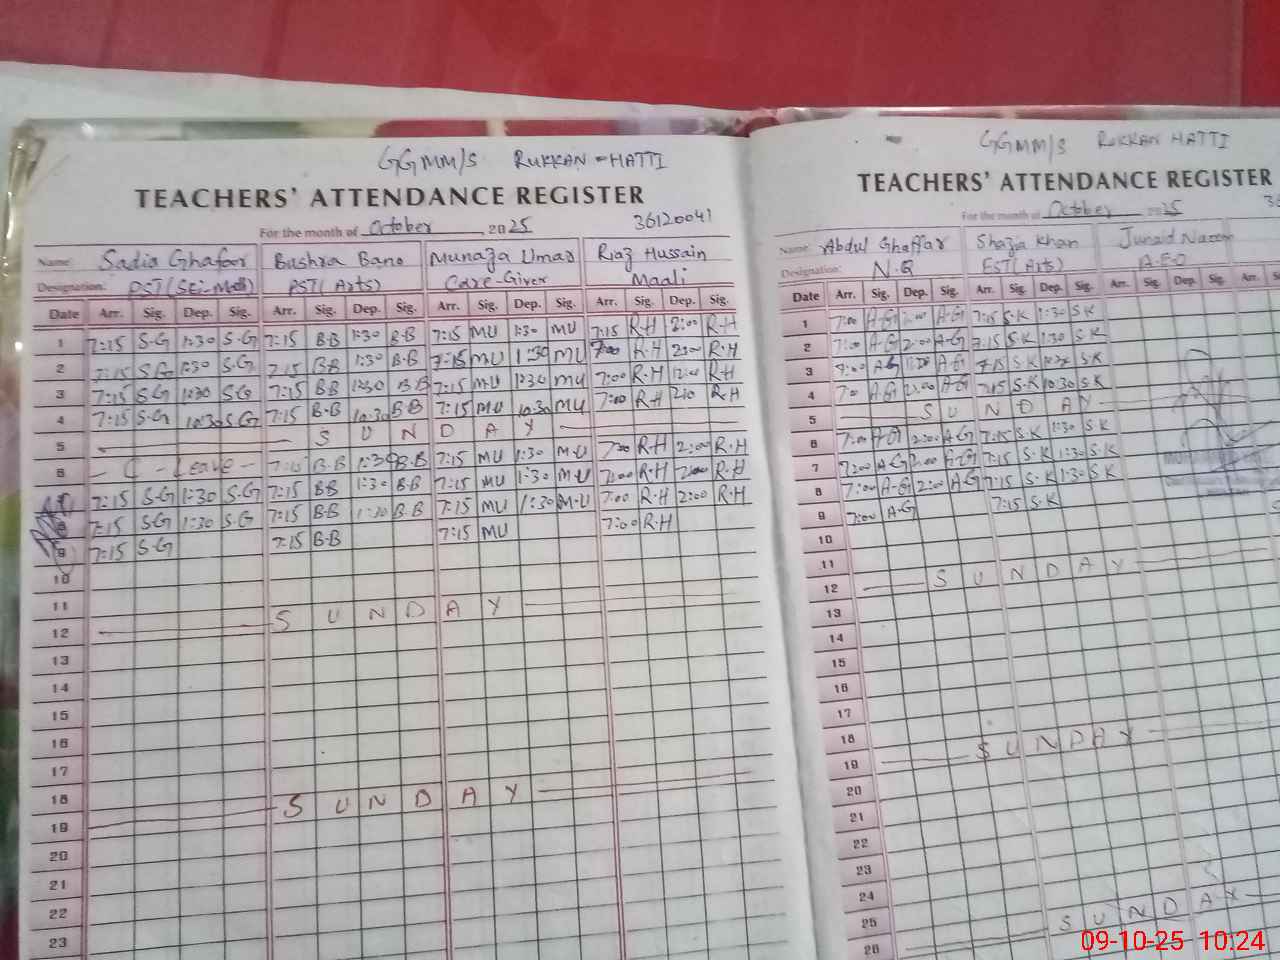 GGMM/S RUKKAN-HATTI
TEACHERS' ATTENDANCE REGISTER
For the month of October 2025 36120041
Name: Sadia Ghafoor Bushra Bano Munaza Umar Riaz Hussain
Designation: PST(Sci-Math) PST(Arts) Care-Giver Maali
Date Arr. Sig. Dep. Sig. Arr. Sig. Dep. Sig. Arr. Sig. Dep. Sig. Arr. Sig. Dep. Sig.
1 7:15 S-G 1:30 S-G 7:15 BB 1:30 B-B 7:15 MU 1:30 MU 7:15 R-H 2:00 R-H
2 7:15 S-G 1:30 S-G 7:15 BB 1:30 B-B 7:15 MU 1:30 MU 7:00 R-H 2:00 R-H
3 7:15 S-G 1:30 S-G 7:15 BB 1:30 BB 7:15 MU 1:30 MU 7:00 R-H 12:00 R-H
4 7:15 S-G 10:30 S-G 7:15 B-B 10:30 BB 7:15 MU 10:30 MU 7:00 R-H R-H
5 SUNDAY
6 - C - Leave - 7:15 B-B 1:30 B-B 7:15 MU 1:30 M-U 7:00 R-H 2:00 R-H
7:15 S-G 1:30 S-G 7:15 BB 1:30 B-B 7:15 MU 1:30 M-U 7:00 R-H 2:00 R-H
8 7:15 S-G 1:30 S-G 7:15 BB 1:30 B-B 7:15 MU 1:30 M-U 7:00 R-H 2:00 R-H
9 7:15 S-G 7:15 B-B 7:15 MU 7:00 R-H
10
11
12 SUNDAY
13
14
15
16
17
18
19 SUNDAY
20
21
22
23
GGMM/S RUKKAN HATTI
TEACHERS' ATTENDANCE REGISTER
For the month of October 2025 36
Name: Abdul Ghaffar Shazia Khan Junaid Nazeer
Designation: N-Q EST(Arts) A-E-O
Date Arr. Sig. Dep. Sig. Arr. Sig. Dep. Sig. Arr. Sig. Dep. Sig. Arr.
1 7:00 A-G 2:00 A-G 7:15 S-K 1:30 S-K
2 7:00 A-G 2:00 A-G 7:15 S-K 1:30 S-K
3 7:00 A-G A-G 7:15 S-K S-K
4 7:00 A-G 2:00 A-G 7:15 S-K 10:30 S-K
5 SUNDAY
6 7:00 A-G 2:00 A-G 7:15 S-K 1:30 S-K
7 7:00 A-G 2:00 A-G 7:15 S-K 1:30 S-K
8 7:00 A-G 2:00 A-G 7:15 S-K 1:30 S-K
9 7:00 A-G 7:15 S-K
10
11
12 SUNDAY
13
14
15
16
17
18
19 SUNDAY
20
21
22
23
24
25
26 SUNDAY
09-10-25 10:24